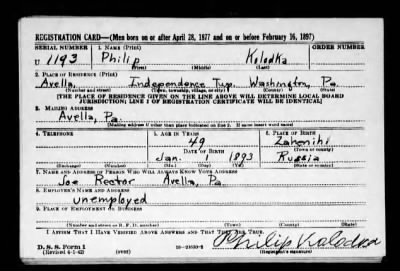 REGISTRATION CARD—(Men born on or after April 28, 1877 and on or before February 16, 1897)
SERIAL NUMBER 1. NAME (Print) ORDER NUMBER
U 1193 Philip Kolodka
(First) (Middle) (Last)
2. PLACE OF RESIDENCE (Print)
Avella, Independence Twp. Washington, Pa.
(Number and street) (Town, township, village, or city) (County) (State)
[THE PLACE OF RESIDENCE GIVEN ON THE LINE ABOVE WILL DETERMINE LOCAL BOARD
JURISDICTION; LINE 2 OF REGISTRATION CERTIFICATE WILL BE IDENTICAL]
3. MAILING ADDRESS
Avella, Pa.
[Mailing address if other than place indicated on line 2. If same insert word same]
4. TELEPHONE 5. AGE IN YEARS 6. PLACE OF BIRTH
49 Zahonihi
DATE OF BIRTH (Town or county)
Jan. 1 1893 Russia
(Exchange) (Number) (Mo.) (Day) (Yr.) (State or country)
7. NAME AND ADDRESS OF PERSON WHO WILL ALWAYS KNOW YOUR ADDRESS
Joe Rector Avella, Pa.
8. EMPLOYER'S NAME AND ADDRESS
unemployed
9. PLACE OF EMPLOYMENT OR BUSINESS
(Number and street or R. F. D. number) (Town) (County) (State)
I AFFIRM THAT I HAVE VERIFIED ABOVE ANSWERS AND THAT THEY ARE TRUE.
D. S. S. Form 1
(Revised 4-1-42) (over) Philip Kolodka